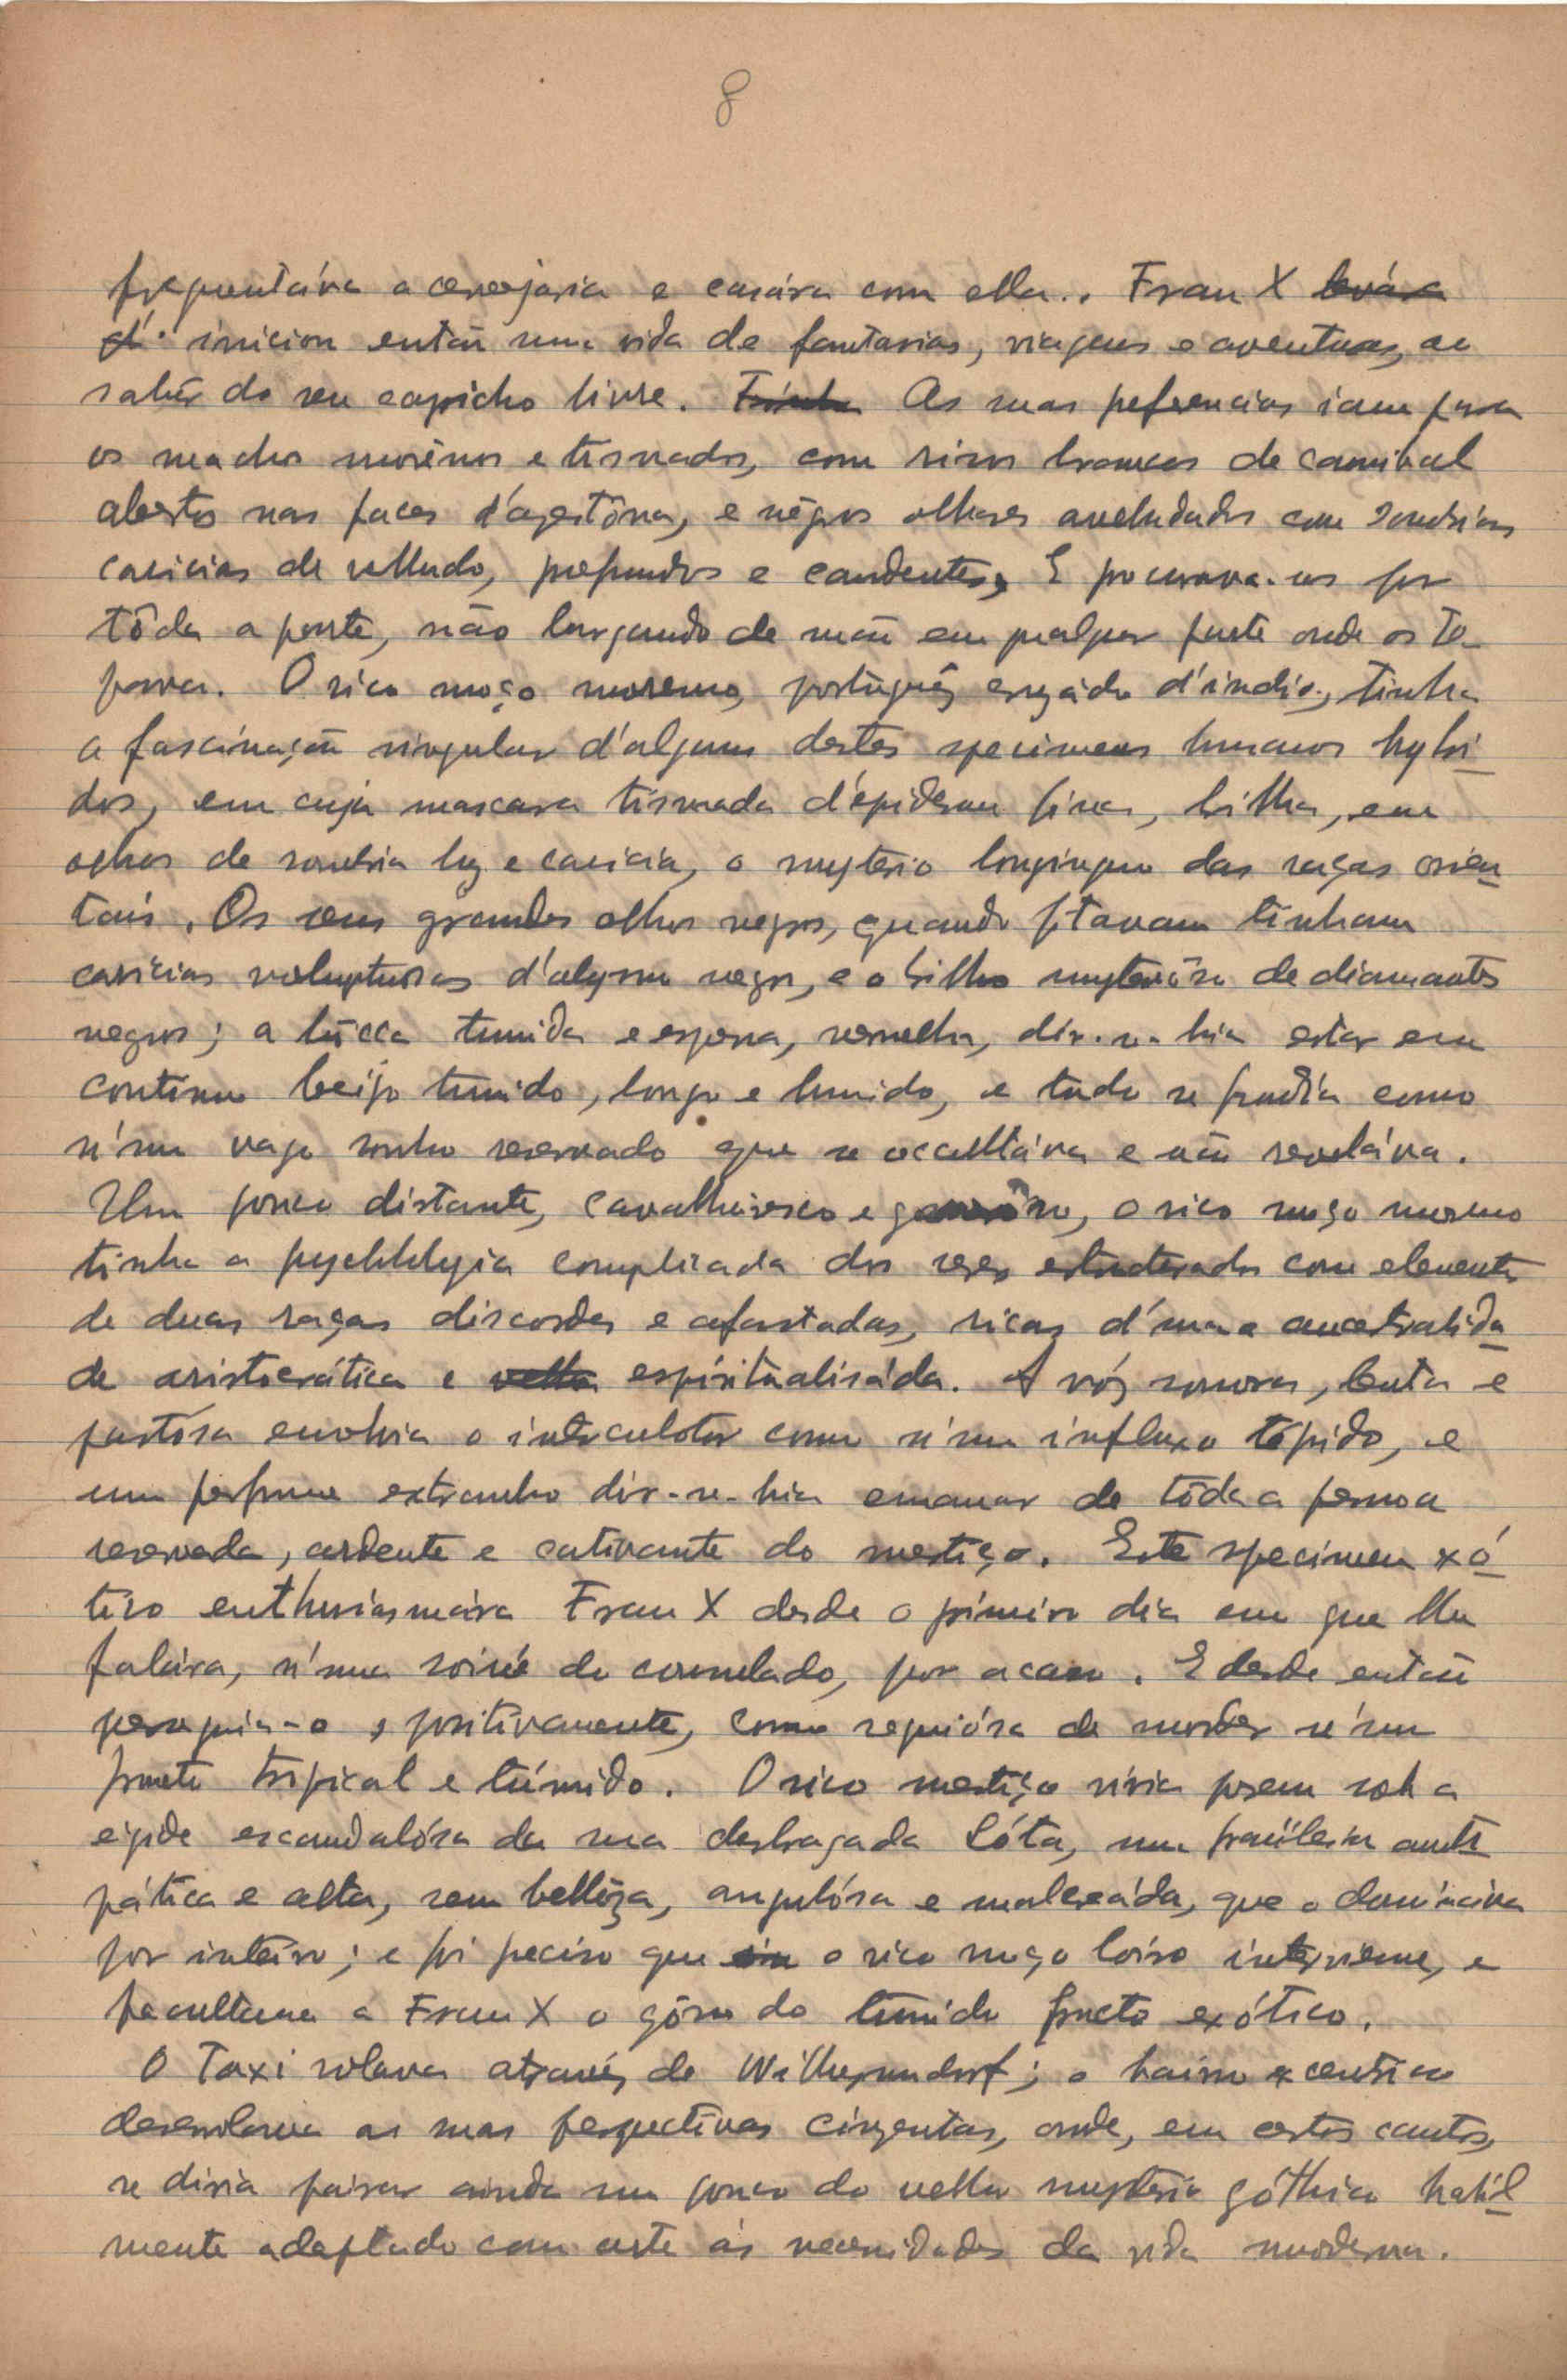 8
frequentára a cervejaria e casára com ella.. Frau X levára
d' iniciou então uma vida de fantasias, viagens e aventuras, ao
sabôr do seu capricho livre. Tinha As suas preferencias iam para
os machos morênos e tisnados, com risos brancos de cannibal
abertos nas faces d'azeitôna, e nêgros olhares avelludados com sombrias
caricias de velludo, profundos e candentes, E procurava-os por
tôda a parte, não largando de mão em qualquer parte onde os to-
pava. O rico moço moreno, português cruzádo d'indio, tinha
a fascinação singular d'alguns destes specimens humanos hybri-
dos, em cuja mascara tisnada d'épiderme fina, brilha, em
olhos de sombria luz e caricia, o mysterio longinquo das raças orien-
tais. Os seus grandes olhos negros, quando fitavam tinham
caricias voluptuosas d'abysmo negro, e o brilho mysterióso de diamantes
negros; a bôcca tumida e espessa, vermelha, dir-se-hia estar em
continuo beijo tumido, longo e humido, e tudo se fundía como
n'um vago sonho reservado que se occultáva e não reveláva.
Um pouco distante, cavalheiresco e generôso, o rico moço moreno
tinha a psychologia complicada dos seres estructurados com elementos
de duas raças discordes e afastadas, ricas d'uma ancestralida-
de aristocrática e velha espiritualisáda. A vóz sonora, lenta e
pastósa envolvia o interlocutor como n'um influxo tépido, e
um perfume extranho dir-se-hia emanar de tôda a pessoa
reservada, ardente e cativante do mestiço. Este specimen exó-
tico enthusiasmára Frau X desde o primeiro dia em que lhe
falára, n'uma soirée do consulado, por acaso. E desde então
perseguia-o, positivamente, como sequiósa de morder n'um
fructo tropical e túmido. O rico mestiço vivia porem sob a
egide escandalósa da sua desbragada Lóta, uma brasileira anti-
pática e alta, sem bellêza, angulósa e malcreáda, que o domináva
por inteiro; e foi preciso que o rico moço loiro interviesse, e
facultasse a Frau X o gôso do túmido fructo exótico.
O Taxi rolava através de Wilhersmdorf; o bairro excentrico
desenrolava as suas perspectivas cinzentas, onde, em certos cantos,
se diria pairar ainda um pouco do velho mysterio góthico habil-
mente adaptado com arte ás necessidades da vida moderna.